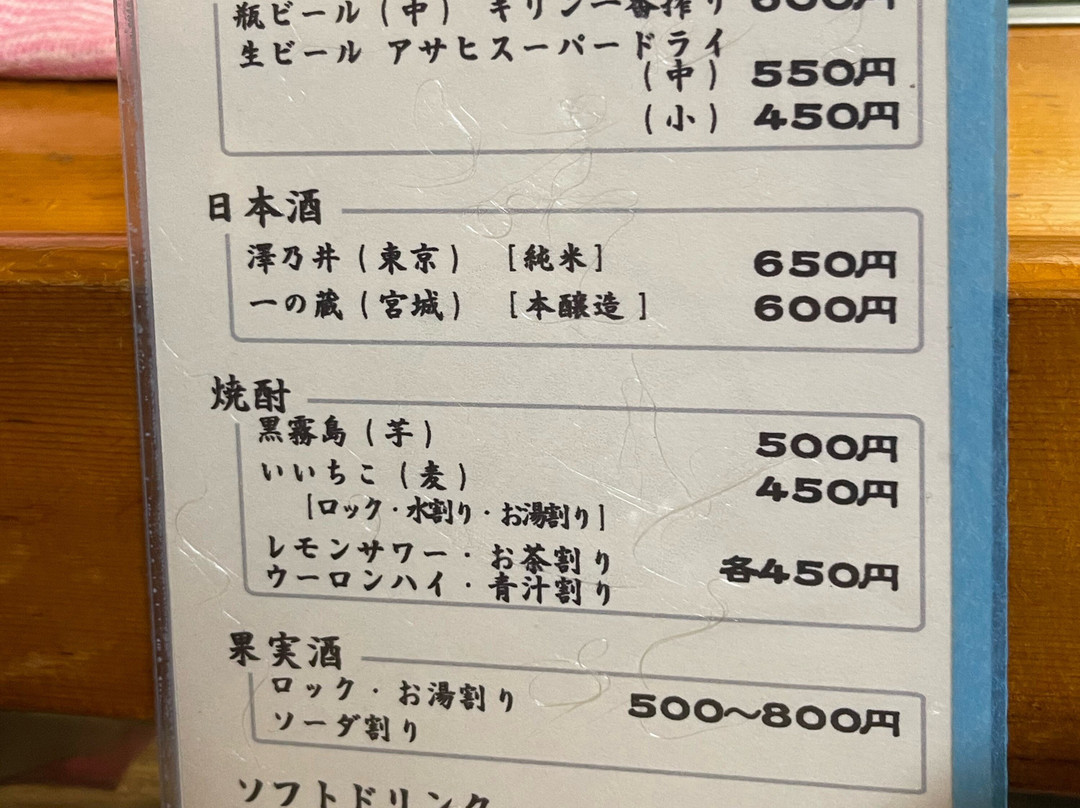 瓶ビール（中） キリン一番搾り 600円
生ビール アサヒスーパードライ
（中） 550円
（小） 450円
日本酒
澤乃井（東京） ［純米］ 650円
一の蔵（宮城） ［本醸造］ 600円
焼酎
黒霧島（芋） 500円
いいちこ（麦） 450円
［ロック・水割り・お湯割り］
レモンサワー・お茶割り
ウーロンハイ・青汁割り 各450円
果実酒
ロック・お湯割り
ソーダ割り 500〜800円
ソフトドリンク